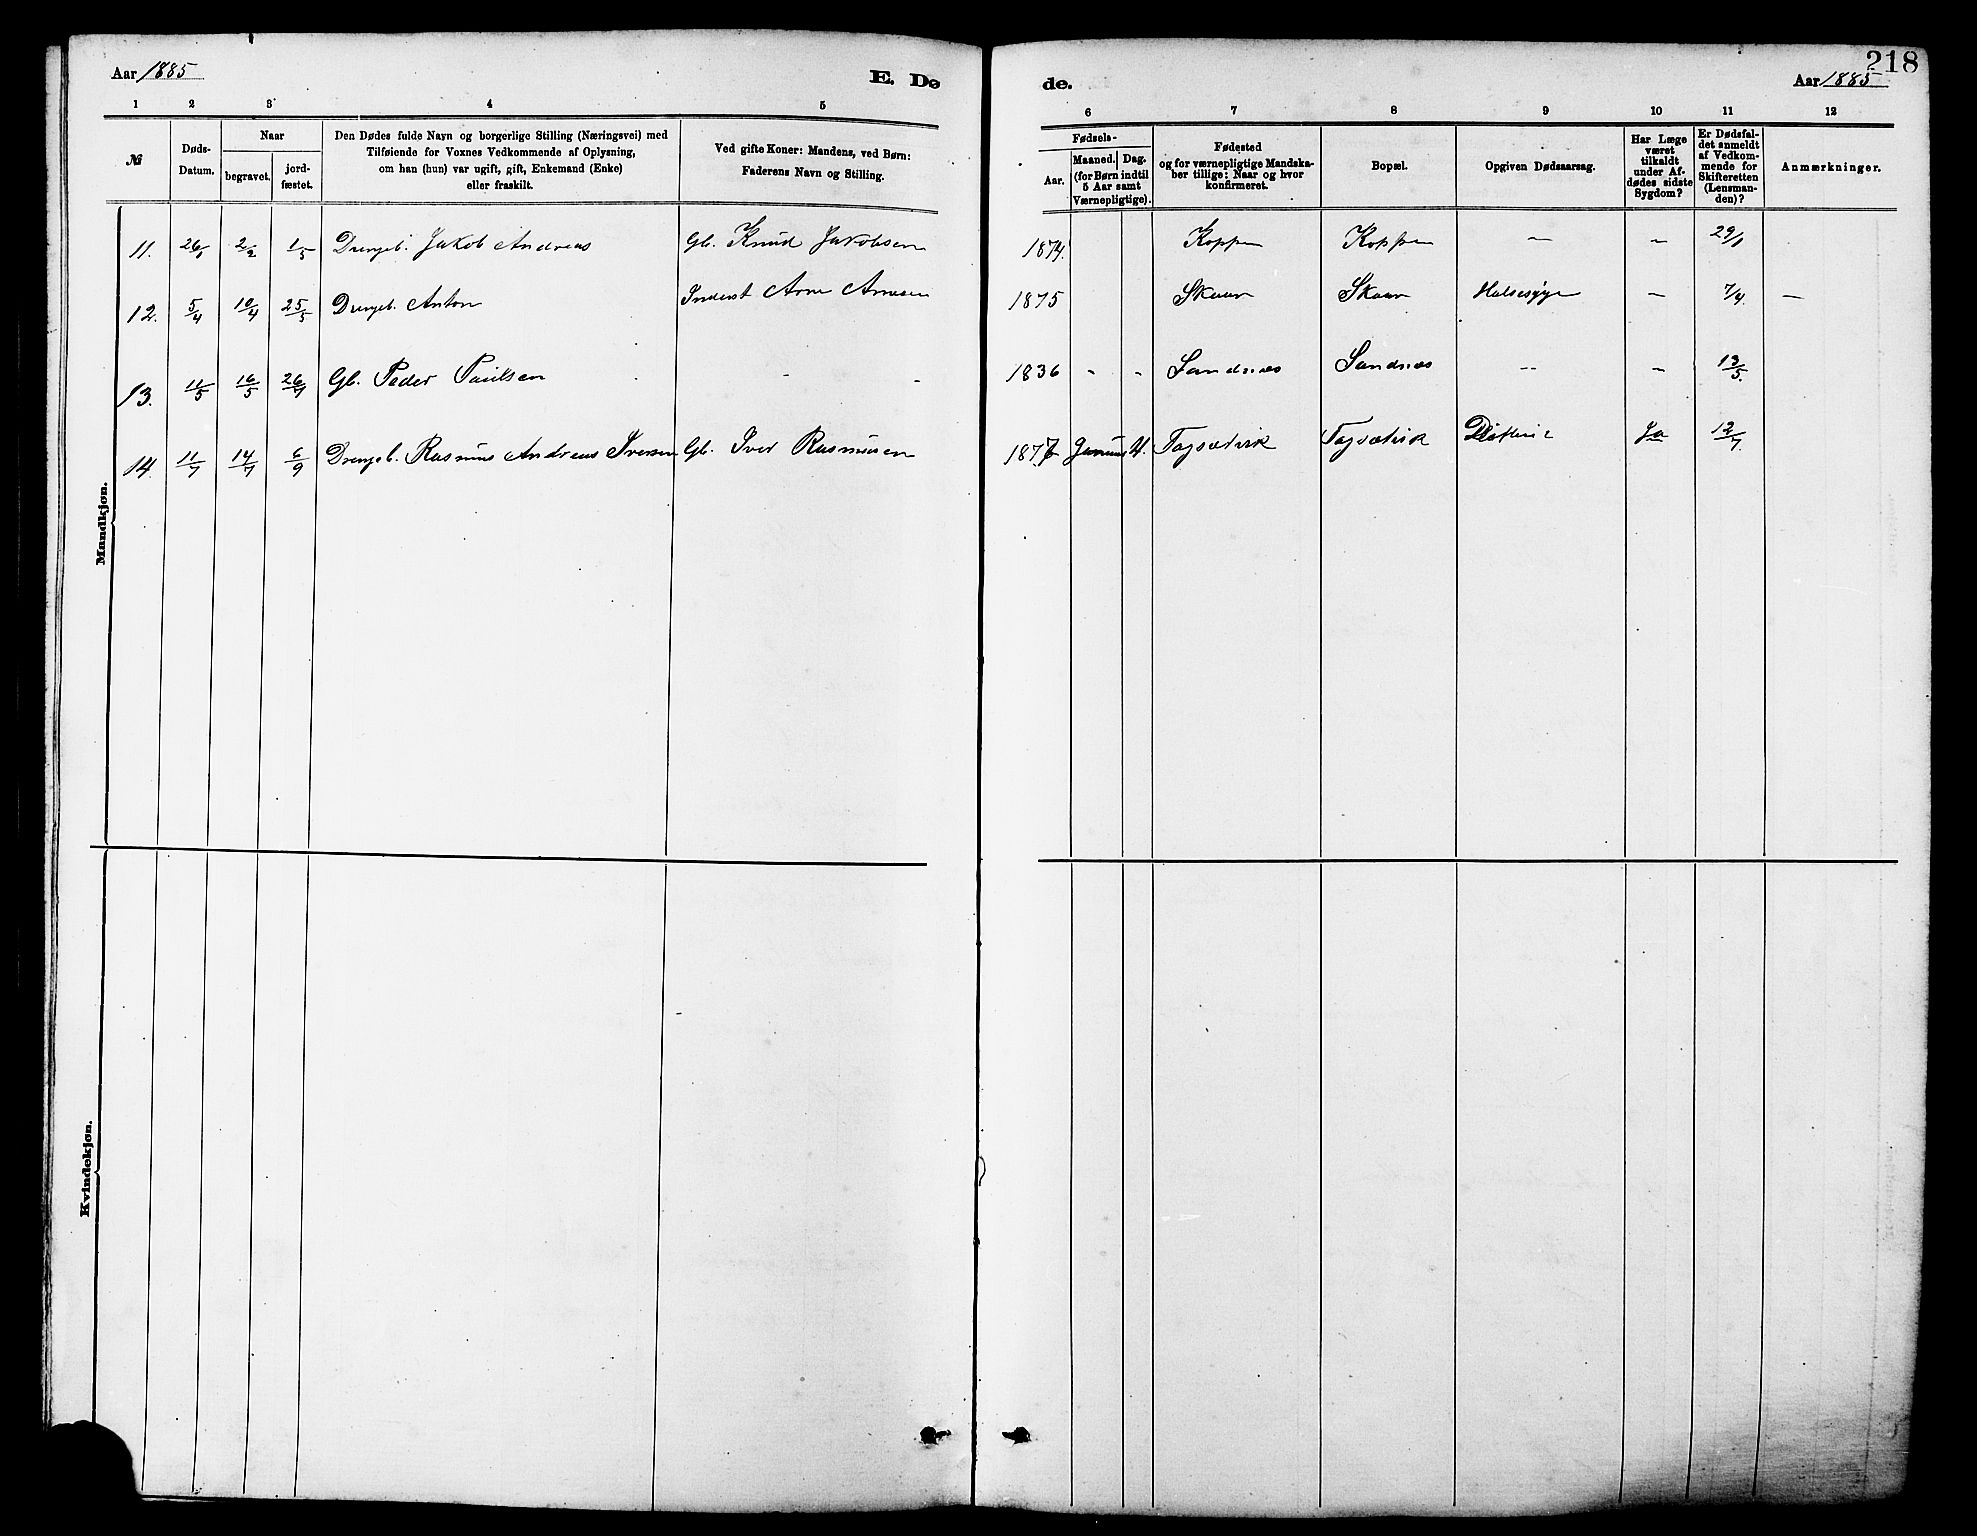 218
Aar 1885 E. Dø de. Aar 1885
1 2 3 4 5 6 7 8 9 10 11 12
№
Døds-
Datum.
Naar
begravet.
jord-
fæstet.
Den Dødes fulde Navn og borgerlige Stilling (Næringsvei) med
Tilføiende for Voxnes Vedkommende af Oplysning,
om han (hun) var ugift, gift, Enkemand (Enke)
eller fraskilt.
Ved gifte Koner: Mandens, ved Børn:
Faderens Navn og Stilling.
Fødsels-
Aar.
Maaned. Dag.
(for Børn indtil
5 Aar samt
Værnepligtige).
Fødested
og for værnepligtige Mandska-
ber tillige: Naar og hvor
konfirmeret.
Bopæl.
Opgiven Dødsaarsag.
Har Læge
været
tilkaldt
under Af-
dødes sidste
Sygdom?
Er Dødsfal-
det anmeldt
af Vedkom-
mende for
Skifteretten
(Lensman-
den)?
Anmærkninger.
Mandkjøn.
11. 26/1 2/2 1/5 Drengeb. Jakob Andreas Gb. Knud Jakobsen 1874. Koppen Koppen — — 29/1
12. 5/4 10/4 25/5 Drengeb. Anton Inderst Arne Arnesen 1875 Skaar Skaar Halsesyge — 7/4. —
13. 11/5 16/5 26/7 Gb. Peder Paulsen - - 1836 - - Sandnæs Sandnæs -- — 13/5.
14. 11/7 14/7 6/9 Drengeb. Rasmus Andreas Iversen Gb. Iver Rasmussen 1877 Tagsætvik Tagsætvik Difterie Ja 12/7.
Kvindekjøn.